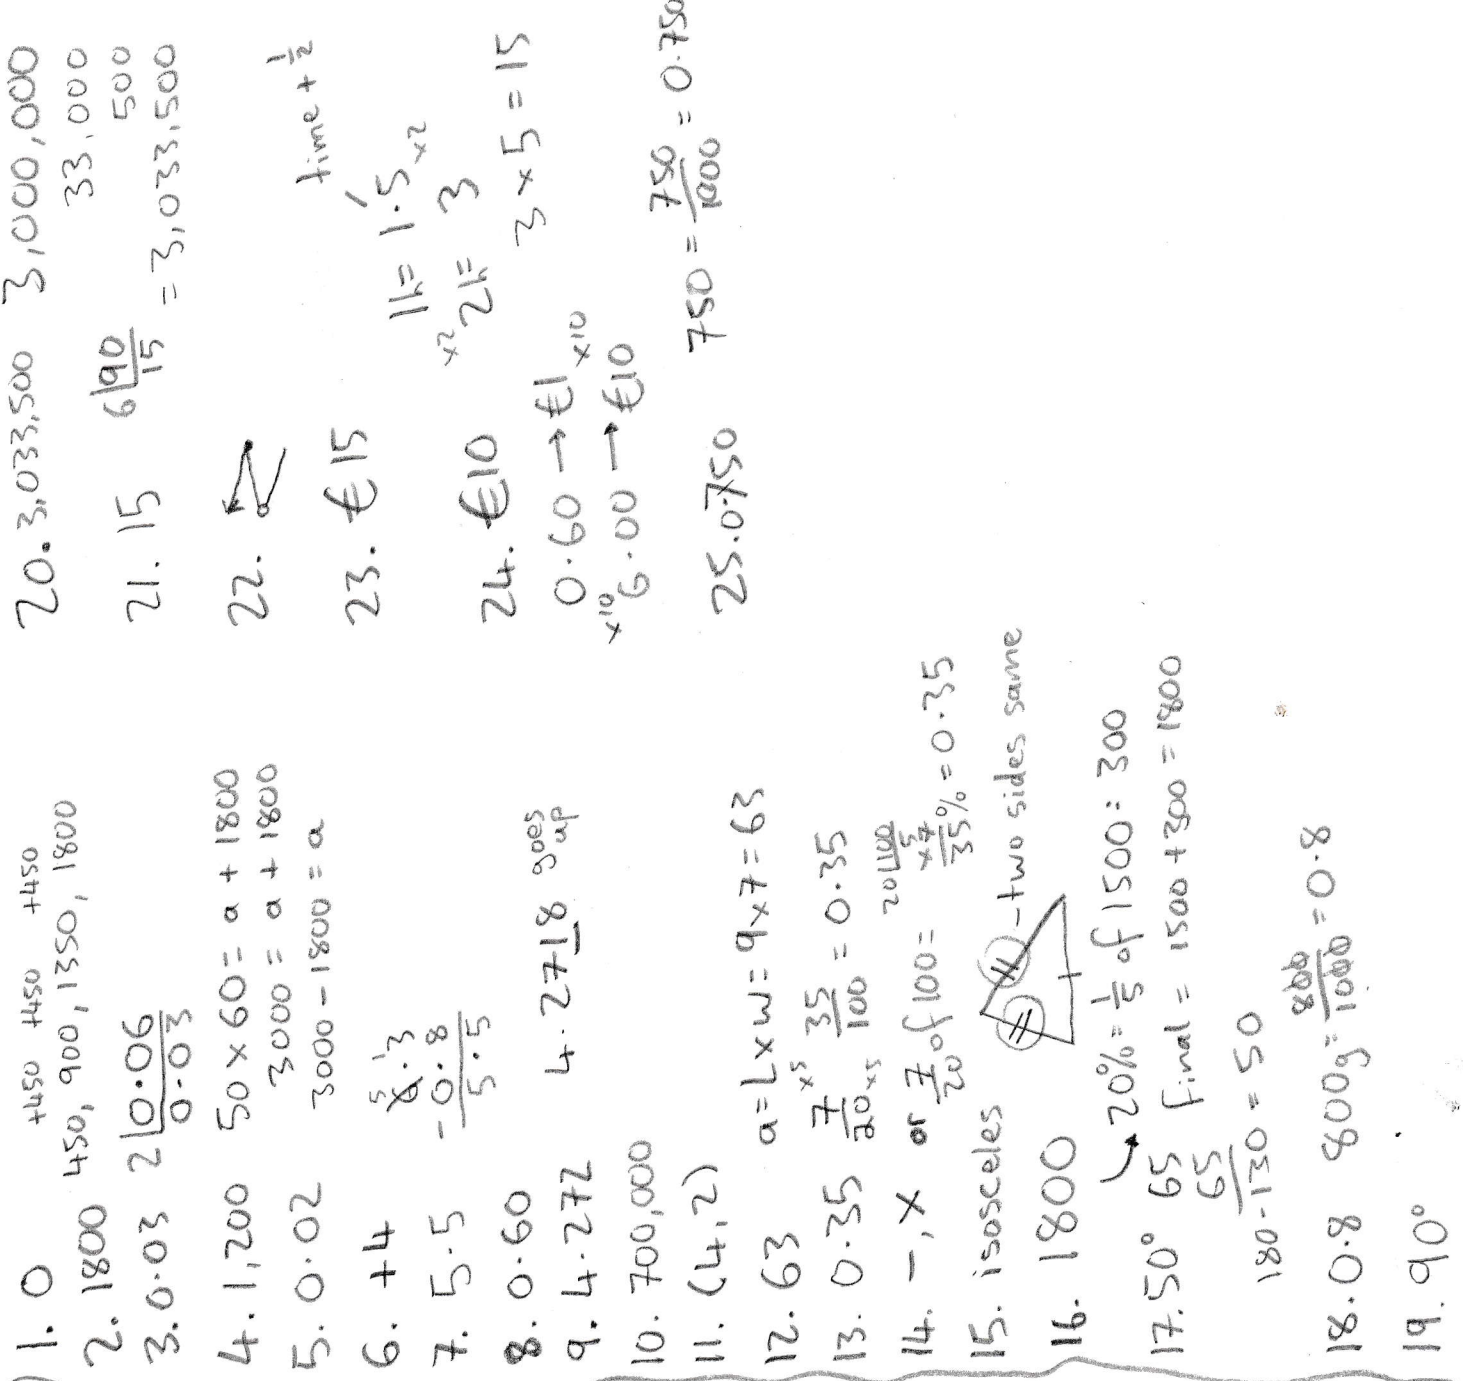 1. 0
+450 +450 +450
2. 1800 450, 900, 1350, 1800
3. 0.03 2 0.06
0.03
4. 1,200 50 x 60 = a + 1800
3000 = a + 1800
5. 0.02 3000 - 1800 = a
6. +4
5 1
6.3
7. 5.5 - 0.8
5.5
8. 0.60
9. 4.272 4.2718 goes up
10. 700,000
11. (4,2)
12. 63 a = L x w = 9 x 7 = 63
13. 0.35 7/20 x5 x5 35/100 = 0.35
14. -, x or 7/20 of 100 = 20 100
5
x 7
35% = 0.35
15. isosceles - two sides same
16. 1800
20% = 1/5 of 1500 = 300
final = 1500 + 300 = 1800
17. 50° 65
65
180 - 130 = 50
18. 0.8 800g = 800/1000 = 0.8
19. 90°
20. 3,033,500 3,000,000
33,000
500
= 3,033,500
21. 15 6 90
15
22.
23. €15
time + 1/2
1h = 1.5
x2 x2
2h = 3
3 x 5 = 15
24. €10
0.60 → €1
x10 x10
6.00 → €10
25. 0.750 750 = 750/1000 = 0.750